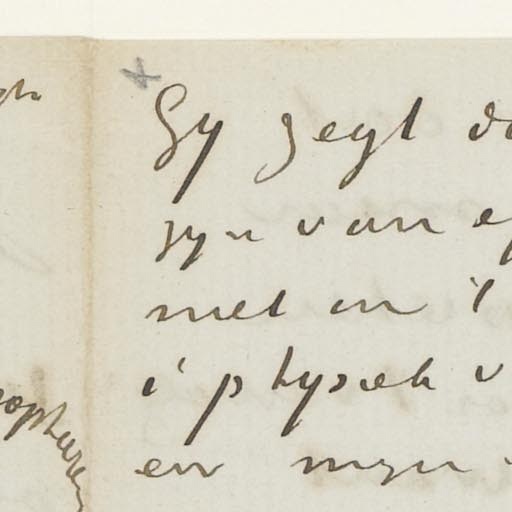 Gy zegt da
zyn van
niet in 't
't physiek v
en myn